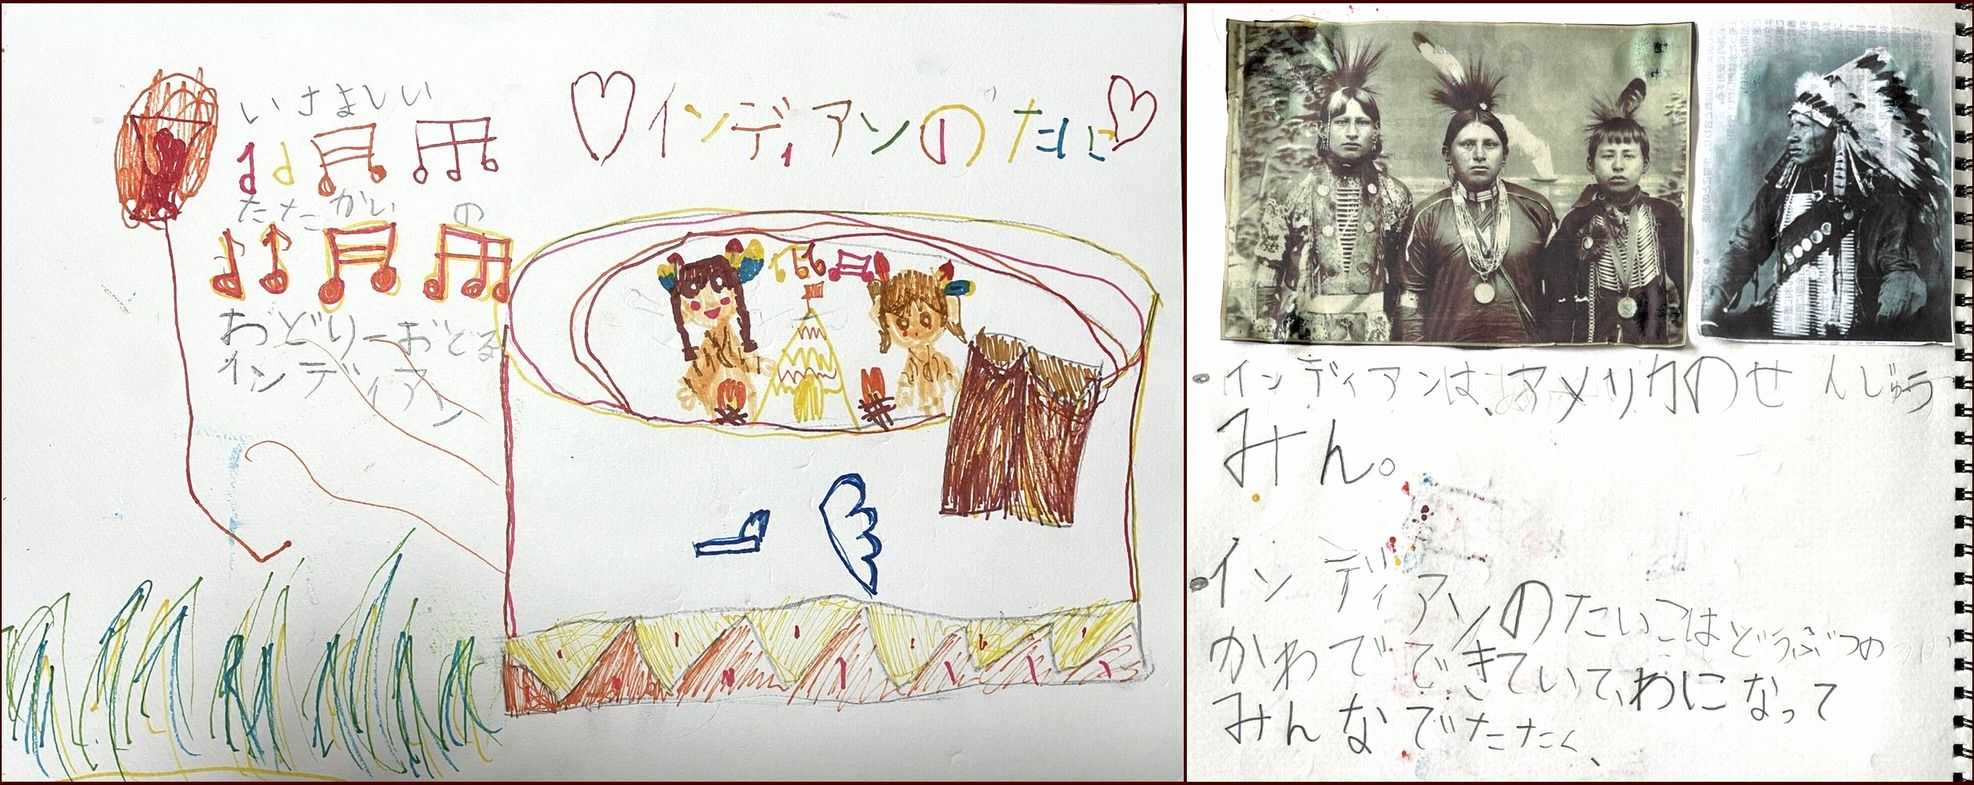 ♡インディアンのたに♡
いさましい
たたかいの
おどりーおどる
インディアン
・インディアンは、アメリカのせんじゅう
みん。
・インディアンのたいこはどうぶつの
かわでできていて、わになって
みんなでたたく、